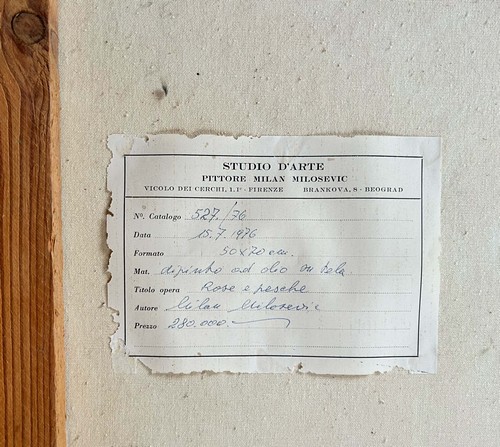 STUDIO D'ARTE
PITTORE MILAN MILOSEVIC
VICOLO DEI CERCHI, 1.1º - FIRENZE BRANKOVA, 8 - BEOGRAD
Nº. Catalogo 527./76
Data 15.7.1976
Formato 50x70 cm.
Mat. dipinto ad olio su tela.
Titolo opera Rose e pesche
Autore Milan Milosevic
Prezzo 280.000.